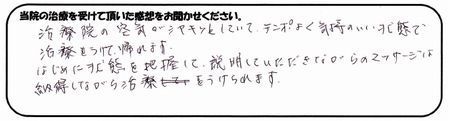 当院の治療を受けて頂いた感想をお聞かせください。
治療院の空気がシャキッとしていて、テンポよく気持のいい状態で
治療をうけて帰れます。
はじめに状態を把握して、説明していただきながらのマッサージは
納得しながら治療をうけられます。